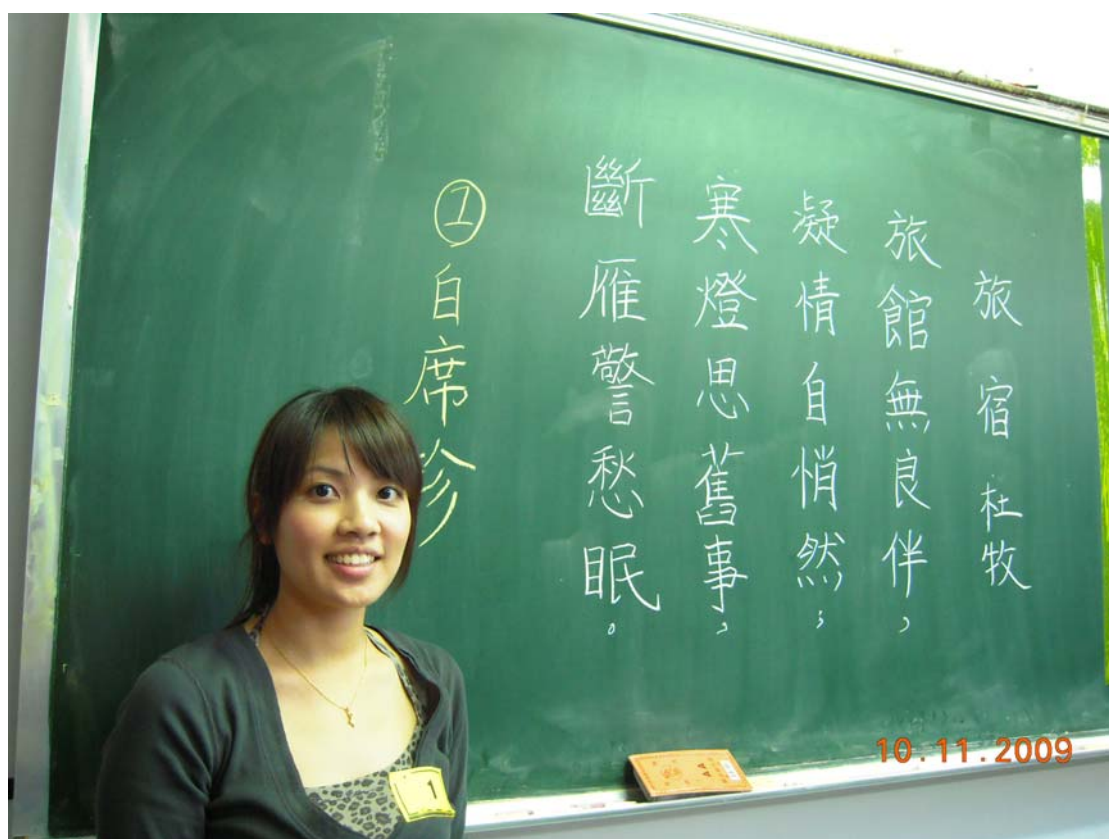 旅宿 杜牧
旅館無良伴，
凝情自悄然；
寒燈思舊事，
斷雁警愁眠。
①自席珍
1
10.11.2009